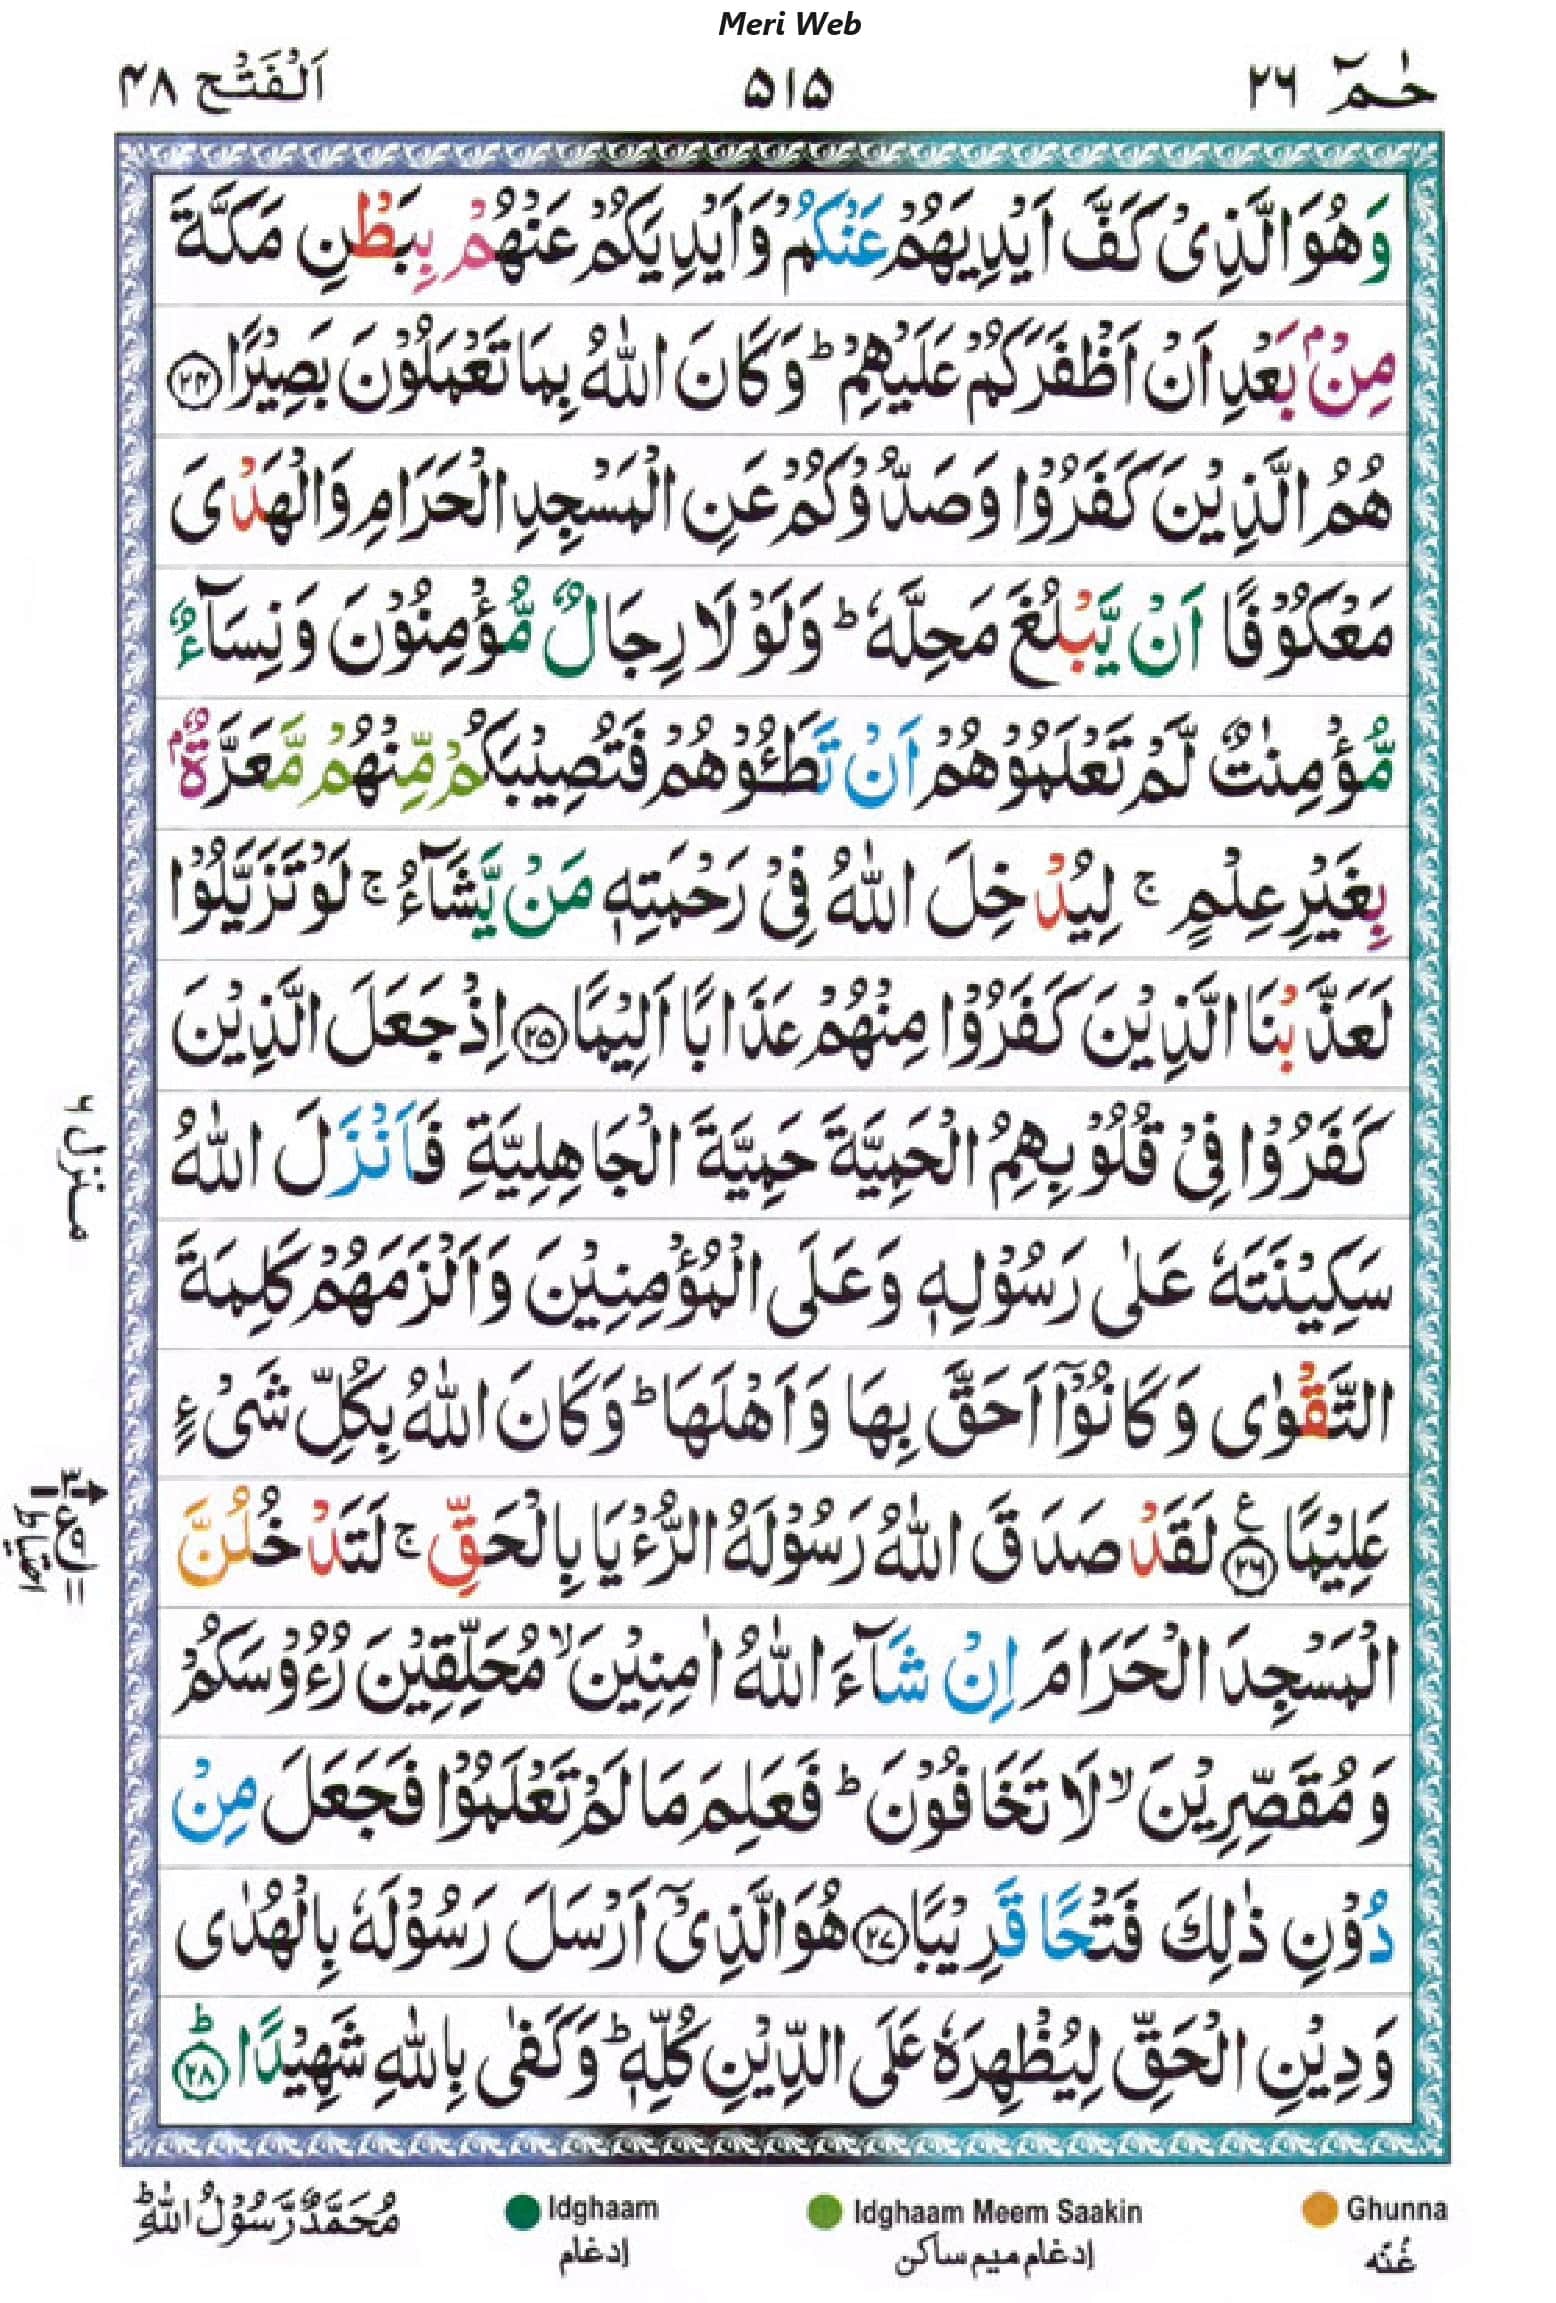 Meri Web
حٰمٓ ۲۶
۵۱۵
اَلْفَتْح ۴۸
وَهُوَ الَّذِىْ كَفَّ اَيْدِيَهُمْ عَنْكُمْ وَاَيْدِيَكُمْ عَنْهُمْ بِبَطْنِ مَكَّةَ
مِنْۢ بَعْدِ اَنْ اَظْفَرَكُمْ عَلَيْهِمْ ؕ وَكَانَ اللّٰهُ بِمَا تَعْمَلُوْنَ بَصِيْرًا ﴿۲۴﴾
هُمُ الَّذِيْنَ كَفَرُوْا وَصَدُّوْكُمْ عَنِ الْمَسْجِدِ الْحَرَامِ وَالْهَدْىَ
مَعْكُوْفًا اَنْ يَّبْلُغَ مَحِلَّهٗ ؕ وَلَوْلَا رِجَالٌ مُّؤْمِنُوْنَ وَنِسَآءٌ
مُّؤْمِنٰتٌ لَّمْ تَعْلَمُوْهُمْ اَنْ تَطَـُٔوْهُمْ فَتُصِيْبَكُمْ مِّنْهُمْ مَّعَرَّةٌۢ
بِغَيْرِ عِلْمٍ ۚ لِيُدْخِلَ اللّٰهُ فِىْ رَحْمَتِهٖ مَنْ يَّشَآءُ ۚ لَوْ تَزَيَّلُوْا
لَعَذَّبْنَا الَّذِيْنَ كَفَرُوْا مِنْهُمْ عَذَابًا اَلِيْمًا ﴿۲۵﴾ اِذْ جَعَلَ الَّذِيْنَ
كَفَرُوْا فِىْ قُلُوْبِهِمُ الْحَمِيَّةَ حَمِيَّةَ الْجَاهِلِيَّةِ فَاَنْزَلَ اللّٰهُ
سَكِيْنَتَهٗ عَلٰى رَسُوْلِهٖ وَعَلَى الْمُؤْمِنِيْنَ وَاَلْزَمَهُمْ كَلِمَةَ
التَّقْوٰى وَكَانُوْۤا اَحَقَّ بِهَا وَاَهْلَهَا ؕ وَكَانَ اللّٰهُ بِكُلِّ شَىْءٍ
عَلِيْمًا ﴿۲۶﴾ ع لَقَدْ صَدَقَ اللّٰهُ رَسُوْلَهُ الرُّءْيَا بِالْحَقِّ ۚ لَتَدْخُلُنَّ
الْمَسْجِدَ الْحَرَامَ اِنْ شَآءَ اللّٰهُ اٰمِنِيْنَ ۙ مُحَلِّقِيْنَ رُءُوْسَكُمْ
وَمُقَصِّرِيْنَ ۙ لَا تَخَافُوْنَ ؕ فَعَلِمَ مَا لَمْ تَعْلَمُوْا فَجَعَلَ مِنْ
دُوْنِ ذٰلِكَ فَتْحًا قَرِيْبًا ﴿۲۷﴾ هُوَ الَّذِىْۤ اَرْسَلَ رَسُوْلَهٗ بِالْهُدٰى
وَدِيْنِ الْحَقِّ لِيُظْهِرَهٗ عَلَى الدِّيْنِ كُلِّهٖ ؕ وَكَفٰى بِاللّٰهِ شَهِيْدًا ؕ ﴿۲۸﴾
منزل ۶
مُحَمَّدٌ رَّسُوْلُ اللّٰهِ ؕ
Idghaam
إدغام
Idghaam Meem Saakin
إدغام ميم ساكن
Ghunna
غُنّه